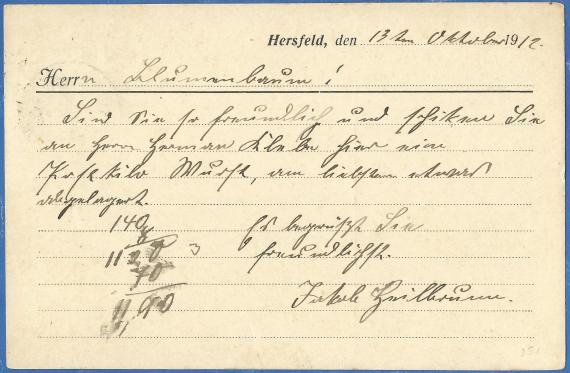 Hersfeld, den 13ten Oktober 1912.
Herrn Blumenbaum!
Sind Sie so freundlich und schiken Sie
an Herrn Herman Klebe hier ein
Postkilo Wurst, am liebsten etwas
abgelagert.
140 Es begrüßt Sie
8
1120 freundlichst.
70
1190 Jakob Heilbrunn.